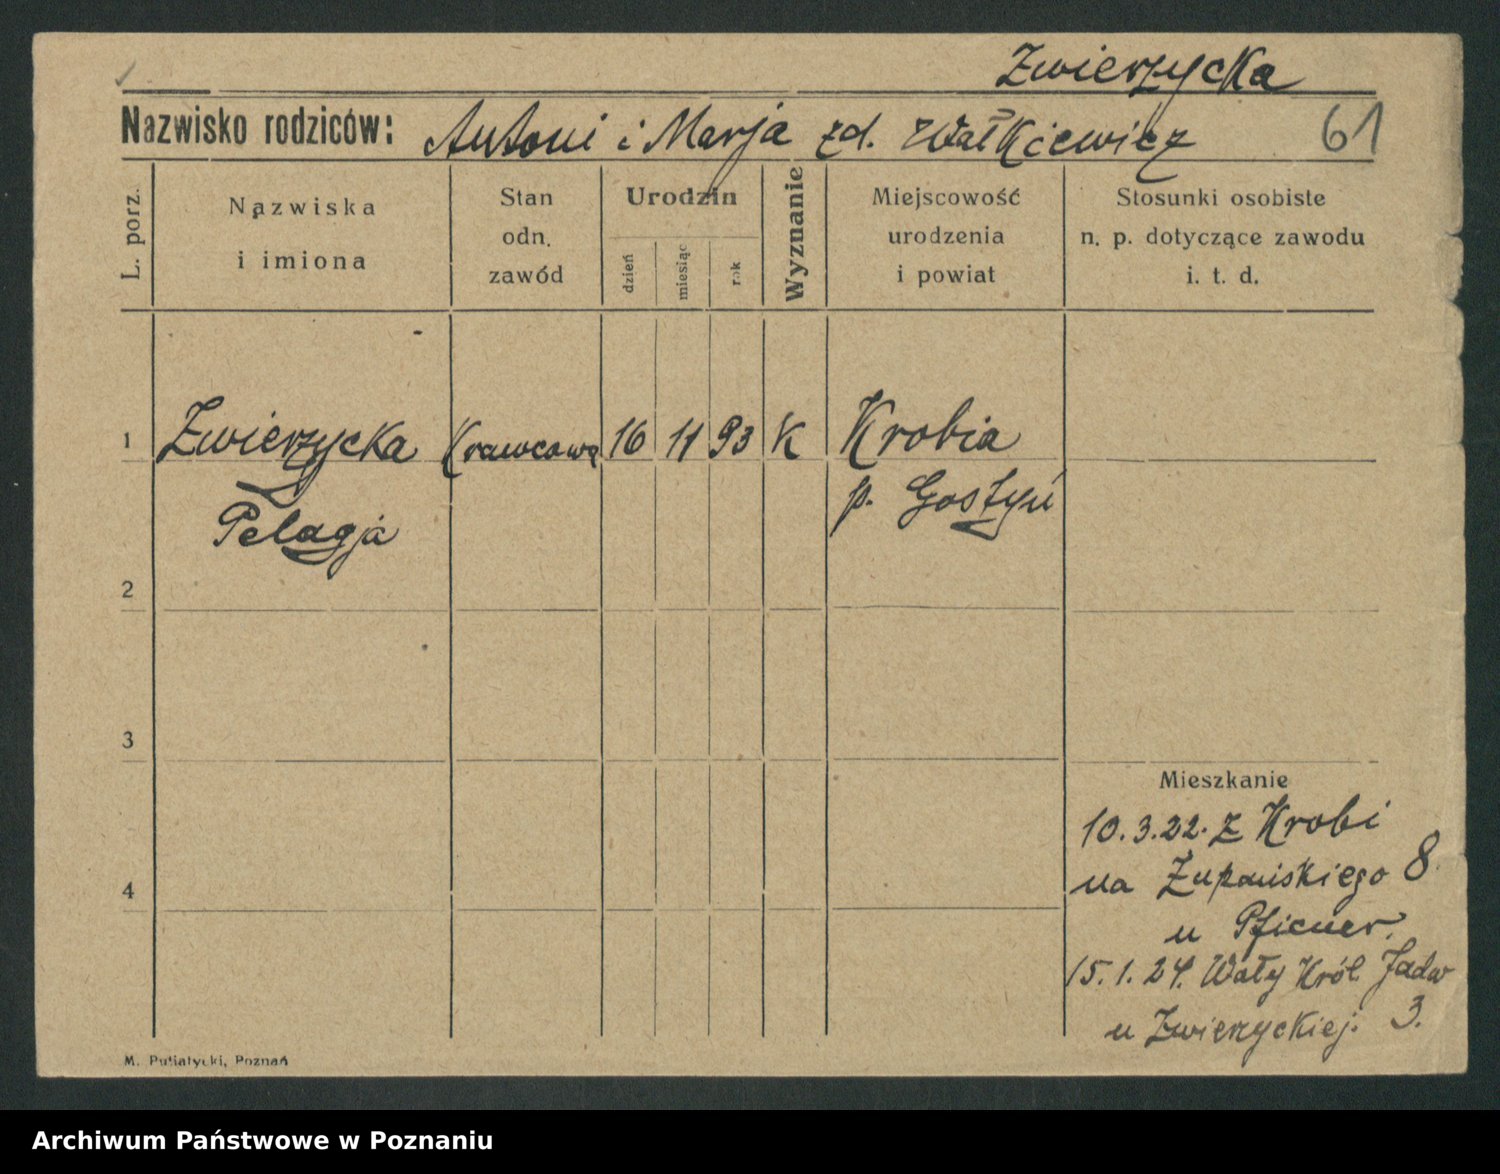 Zwierzycka
Nazwisko rodziców: Antoni i Marja zd. Wałkiewicz 61
L. porz.
Nazwiska
i imiona
Stan
odn.
zawód
Urodzin
dzień
miesiąc
rok
Wyznanie
Miejscowość
urodzenia
i powiat
Stosunki osobiste
n. p. dotyczące zawodu
i. t. d.
1 Zwierzycka Krawcowa 16 11 93 K Krobia
Pelagja p. Gostyń
2
3
4
Mieszkanie
10.3.22. z Krobi
na Żupańskiego 8
u Pficner.
15.1.24. Wały Król. Jadw
u Zwierzyckiej. 3.
M. Putiatycki, Poznań
Archiwum Państwowe w Poznaniu